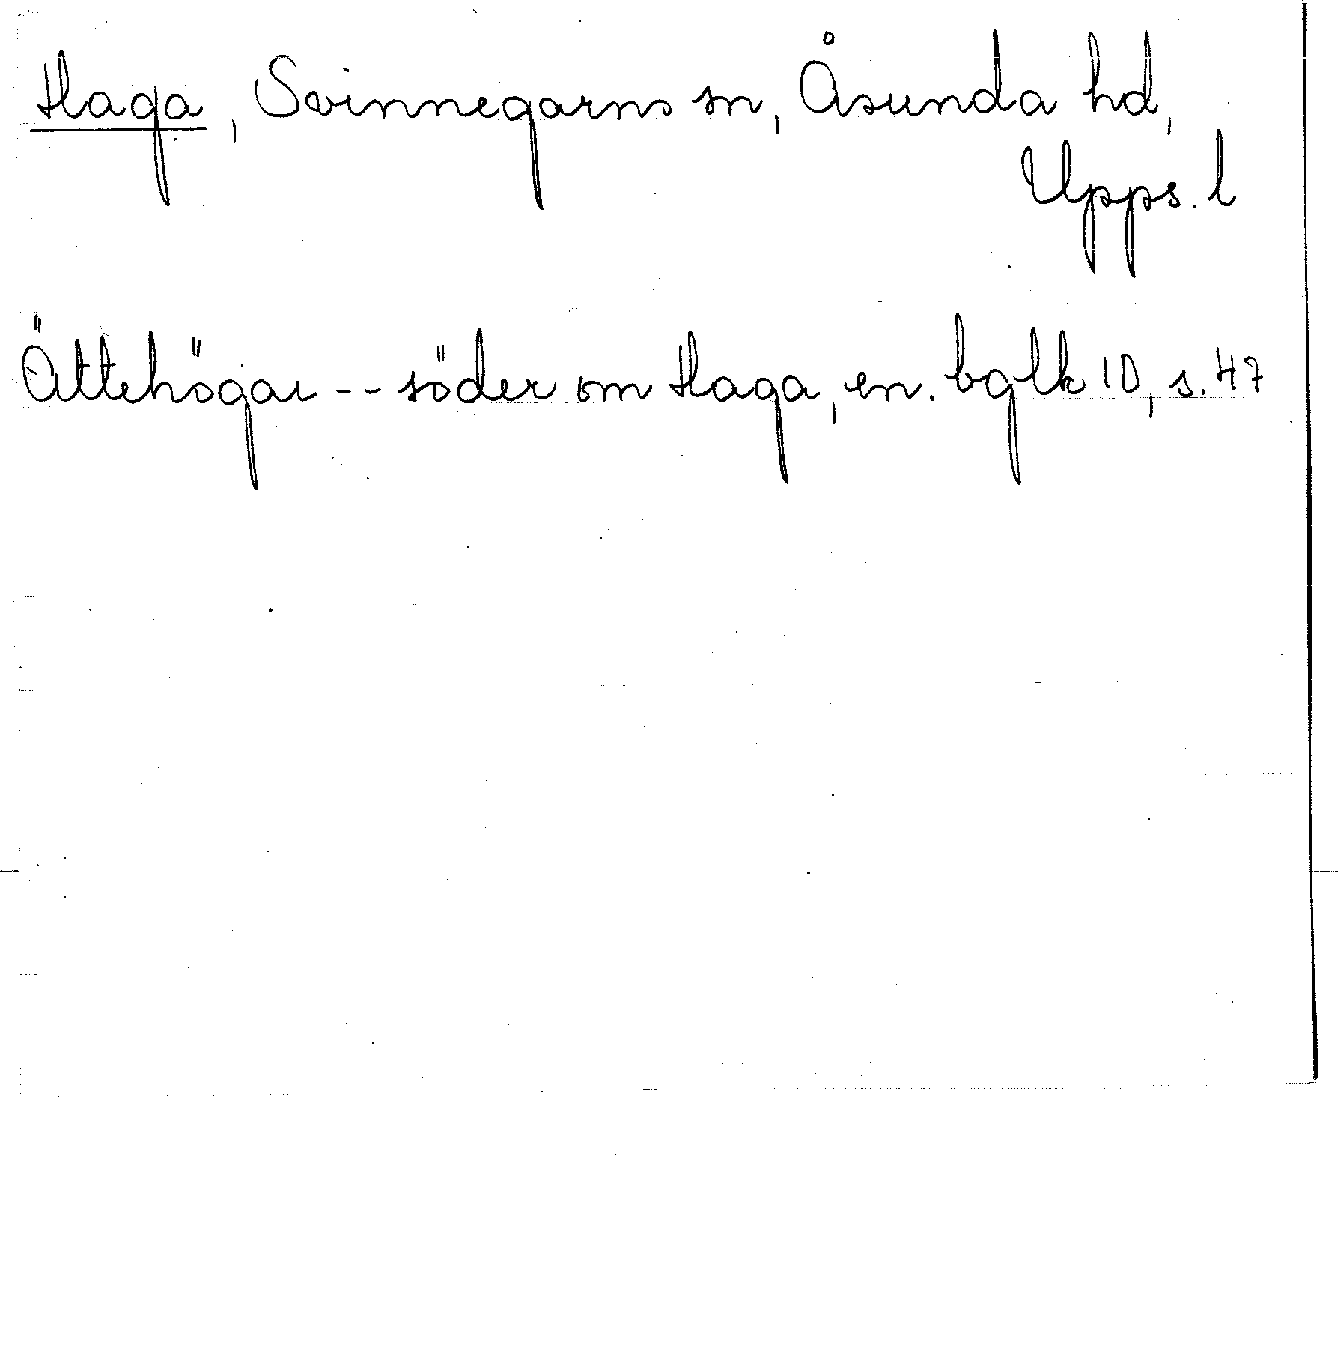 Haga, Svinnegarns sn, Åsunda hd,
Upps. l
Ättehögar -- söder om Haga, en. bglk 10, s. 47